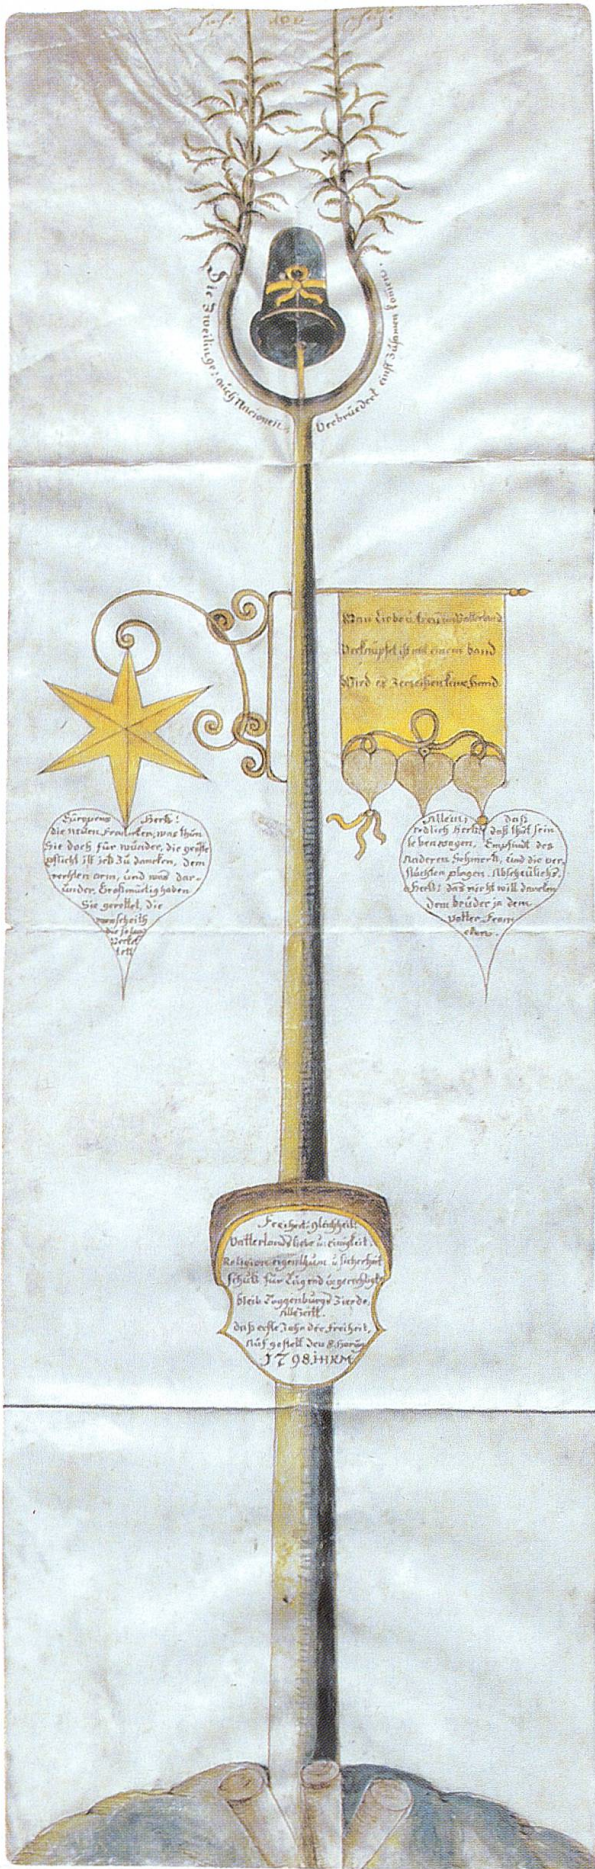 Die Zweilinge: auch Nacionen
Verbruedert einst Zusamen komen.
Man Liebe u. treu im Vatterland
Verknüpfet ist mit einem band
Wird es Zerreissen keine Hand
Europens Herk!
die neuen Francken, was thun
Sie doch für wunder, die größte
pflicht ist jeb Zu dancken, dem
rechten arm, und was dar-
under, Großmütig haben
Sie gerettet, die
menscheith
die so lang
Allein; daß
redlich Herk; daß thut sein
Empfindt des
Anderen Schmertz, und die ver-
fluchten plagen. Abscheülichs
Herk! das nicht will
dem brüder in dem
Vatter
Freiheit: gleichheit:
Vatterlands liebe u: einigkeit:
Religion eigenthum u sicherheit
schutz für Tugend u: gerechtigk:
bleib Toggenburgs Zierde,
Allezeitt.
daß erste Jahr der Freiheit,
Auf gestelt den 8. Hornig
1798. IHKM